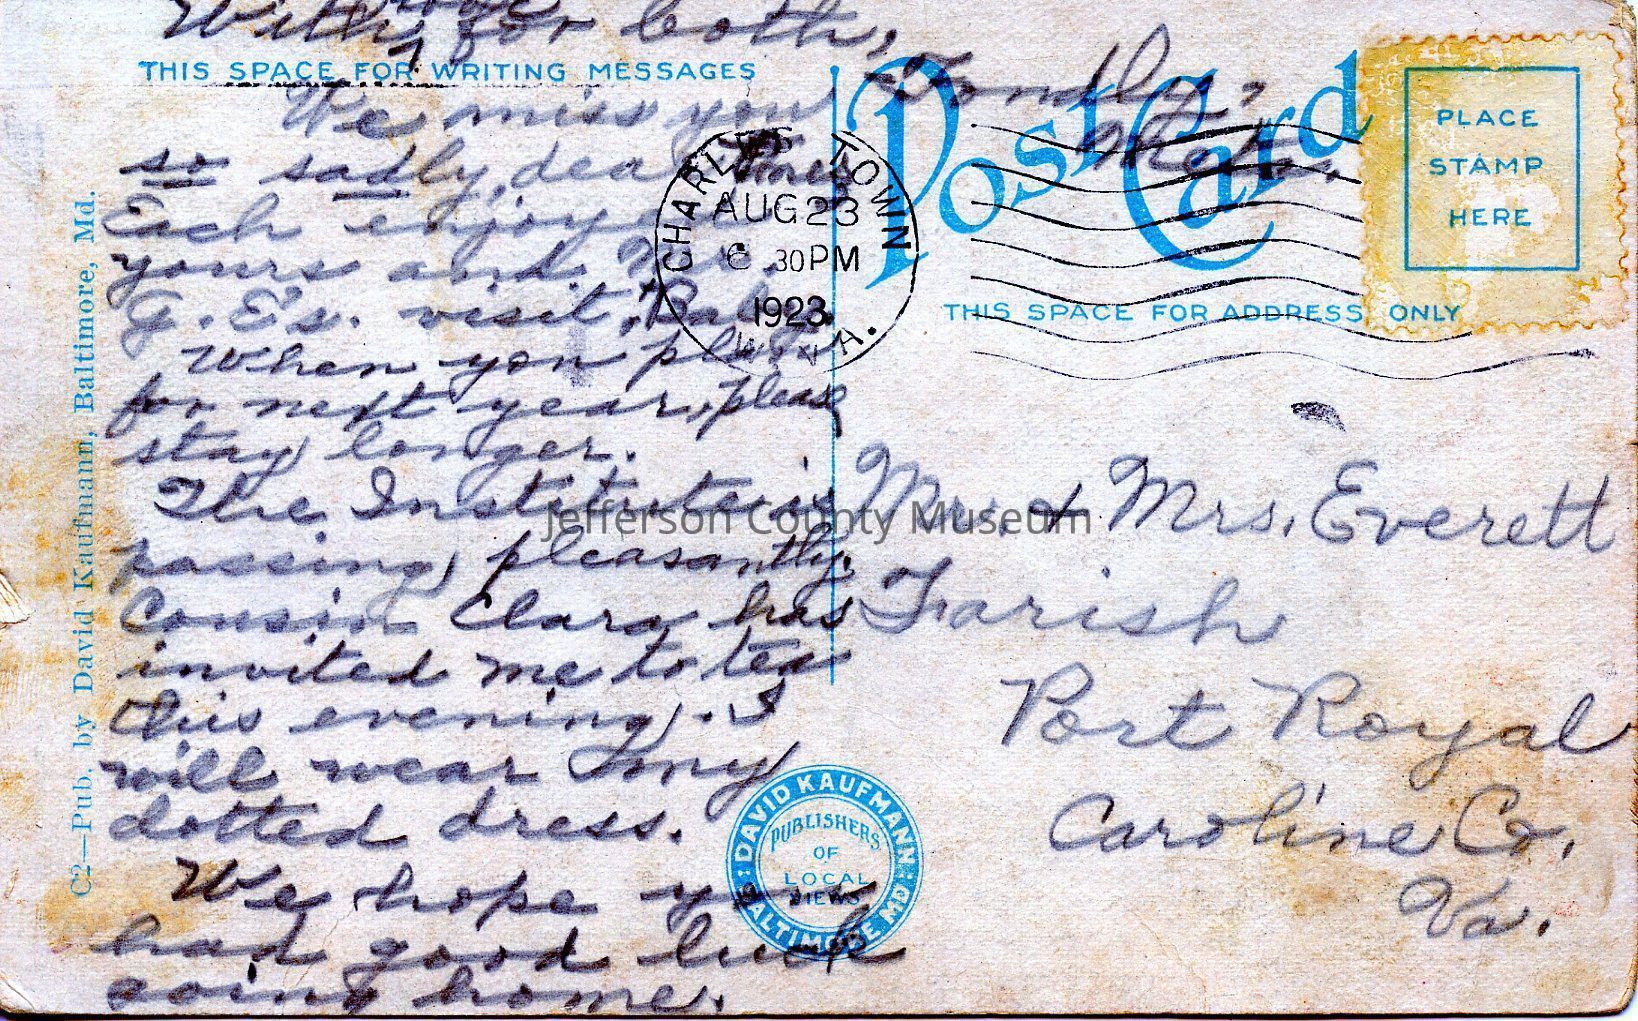 We miss you
so sadly, dear
Each enjoyed
yours and Mrs.
G. E's. visit, Baby
When you plan
for next year, please
stay longer.
The Institute is
passing pleasantly.
Cousin Clara has
invited me to tea
this evening. I
will wear my
dotted dress.
We hope you
had good luck
going home.
With love for both,
Fondly,
THIS SPACE FOR WRITING MESSAGES
C2—Pub. by David Kaufmann, Baltimore, Md.
Post Card
CHARLES TOWN
AUG 23
6 30PM
1923
W. VA.
PLACE
STAMP
HERE
THIS SPACE FOR ADDRESS ONLY
Mr. & Mrs. Everett
Farish
Port Royal
Caroline Co.
Va.
DAVID KAUFMANN
BALTIMORE MD.
PUBLISHERS
OF
LOCAL
VIEWS
Jefferson County Museum